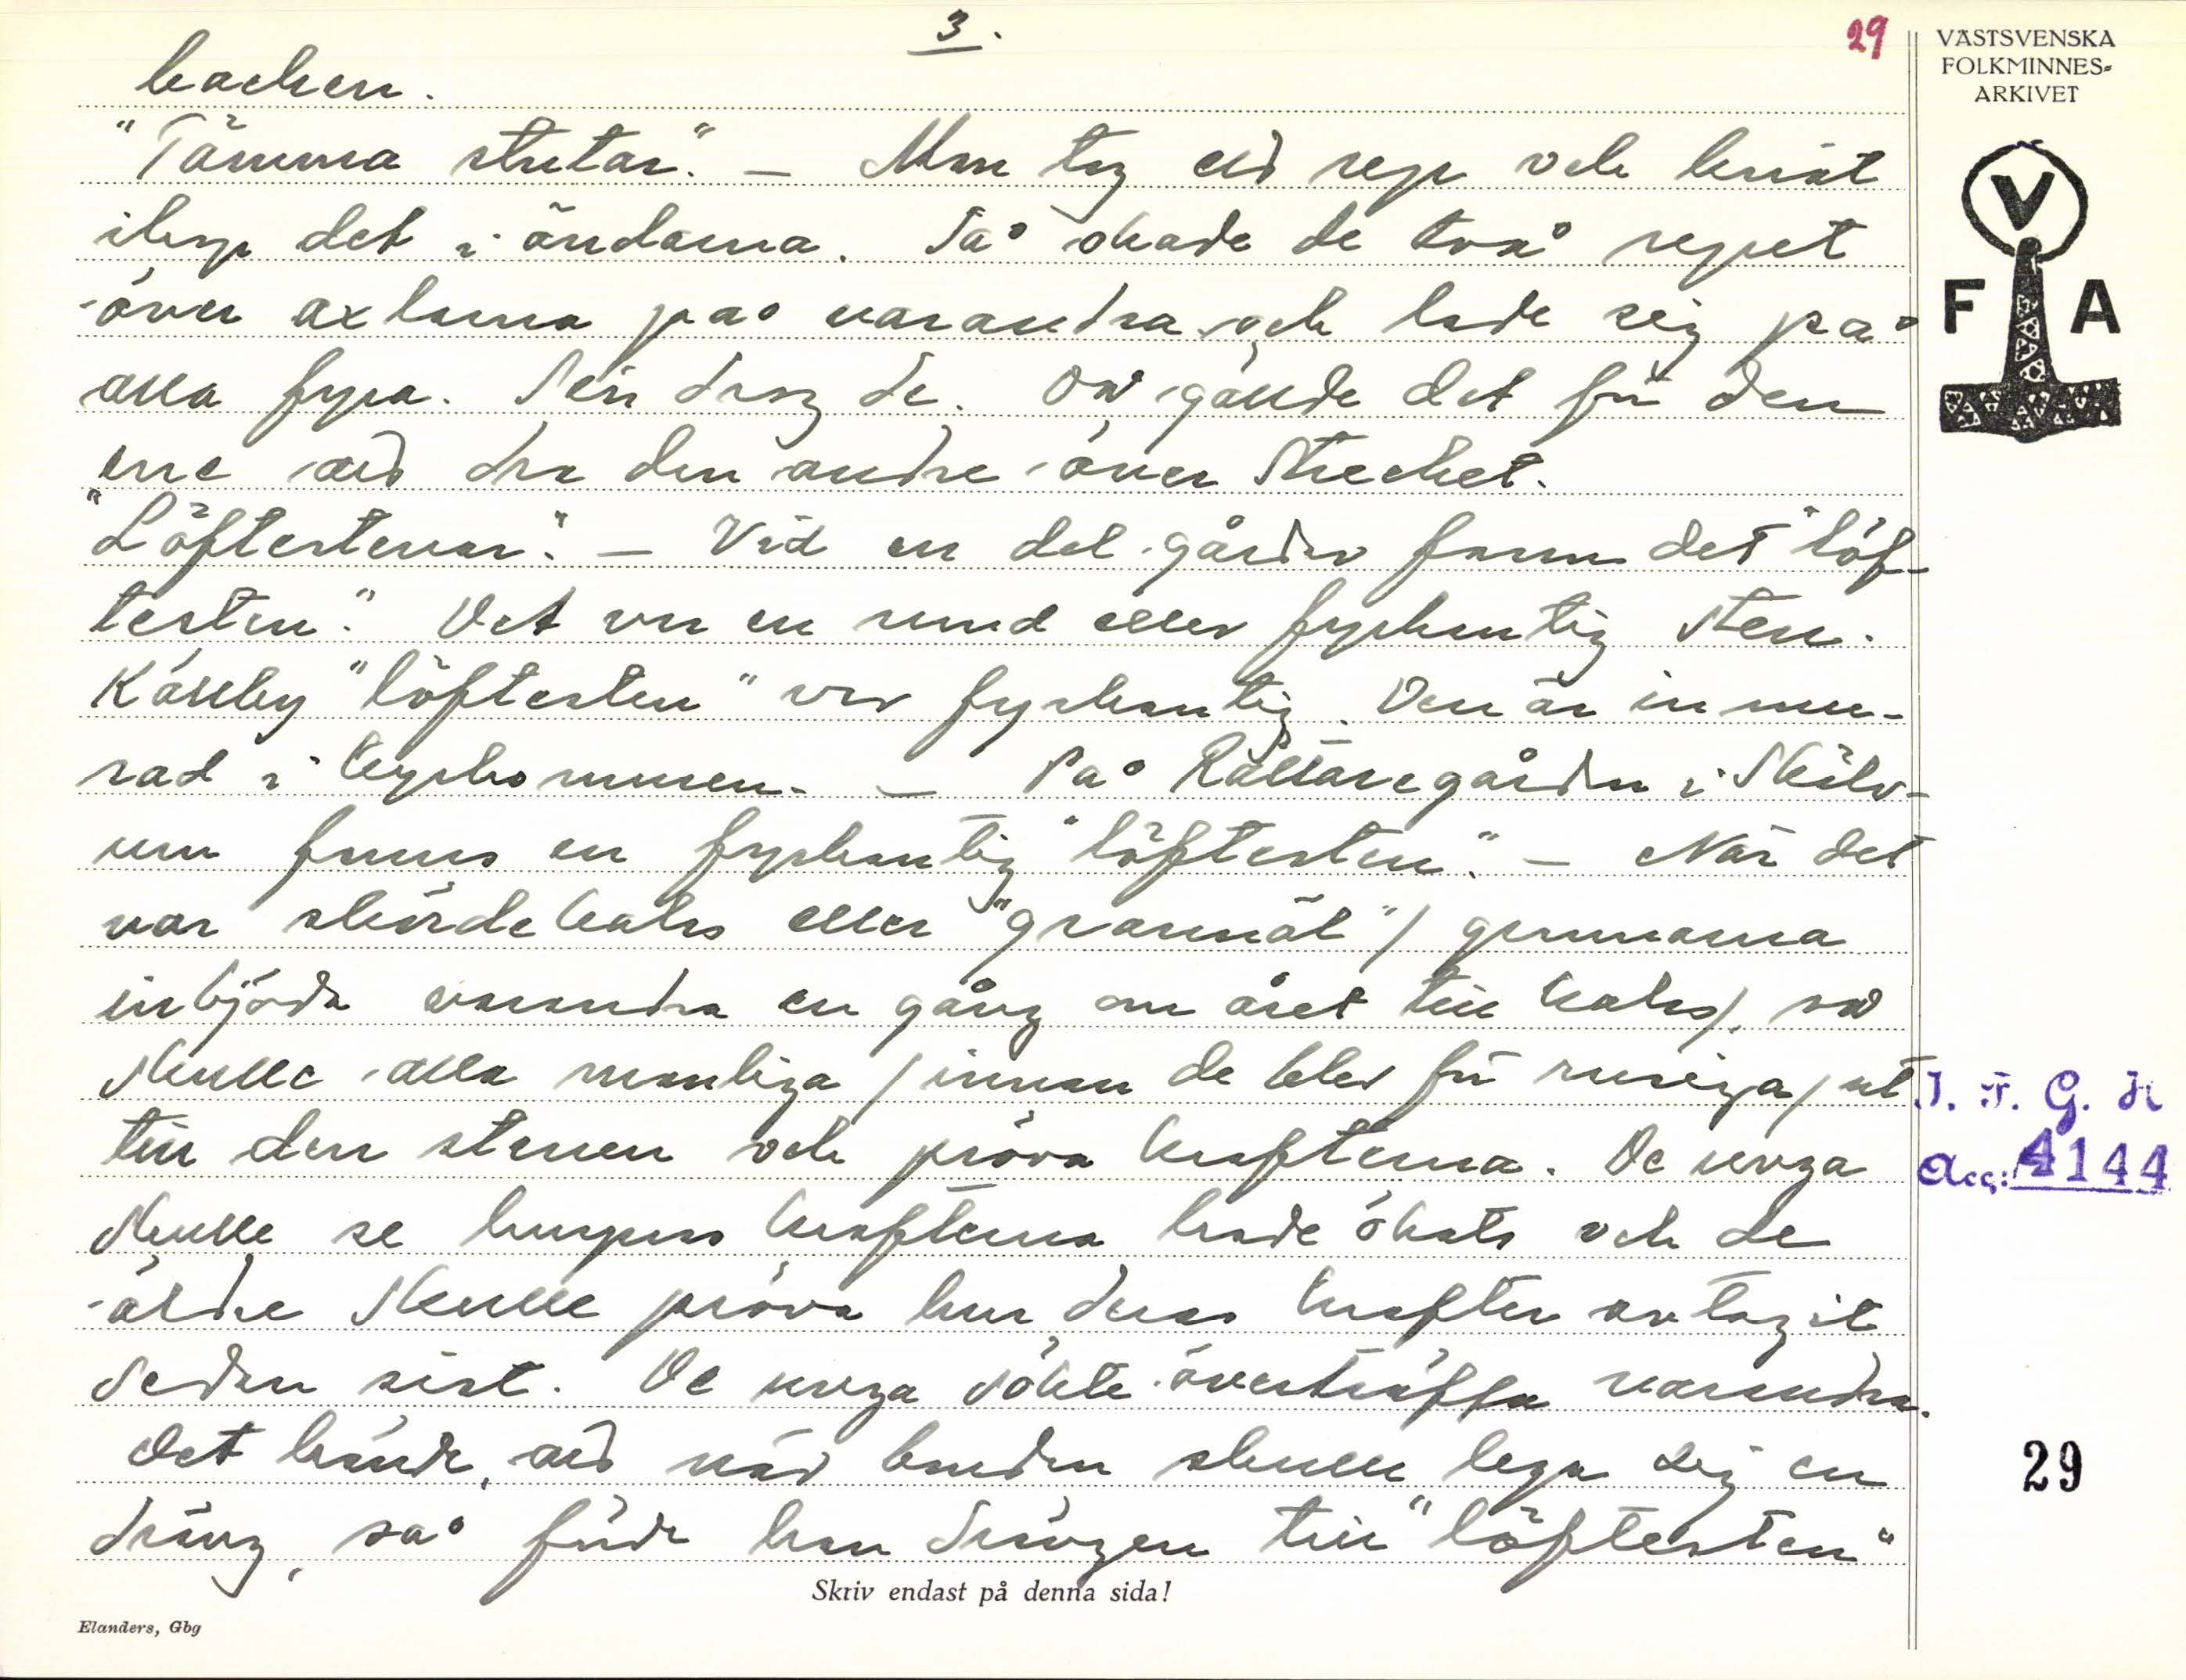 3.
29
backen.
"Tämma stutar". — Man tog ett rep och knöt
ihop det i ändarna. Så skade de två repet
över axlarna på varandra och lade sig på
alla fyra. Sen drog de. Då gällde det för den
ene att dra den andre över strecket.
"Löftestenar". — Vid en del gårdar fanns det "löf-
testen". Det var en rund eller fyrkantig sten.
Källby "löftesten" var fyrkantig. Den är inmu-
rad i kyrkomuren. — På Rättaregården i Skälv-
um fanns en fyrkantig "löftesten". — När det
var skördekalas eller "grannöl" / grannarna
inbjöda varandra en gång om året till kalas/, då
skulle alla manliga / innan de blev för rusiga / ut
till den stenen och pröva krafterna. De unga
skulle se hurpass krafterna hade ökats och de
äldre skulle pröva hur deras krafter avtagit
sedan sist. De unga sökte överträffa varandra.
Det hände, att när bonden skulle lega sig en
dräng, så förde han drängen till "löftesten"
Skriv endast på denna sida!
Elanders, Gbg
VÄSTSVENSKA
FOLKMINNES-
ARKIVET
V
F A
I. F. G. H
Acc: 4144
29